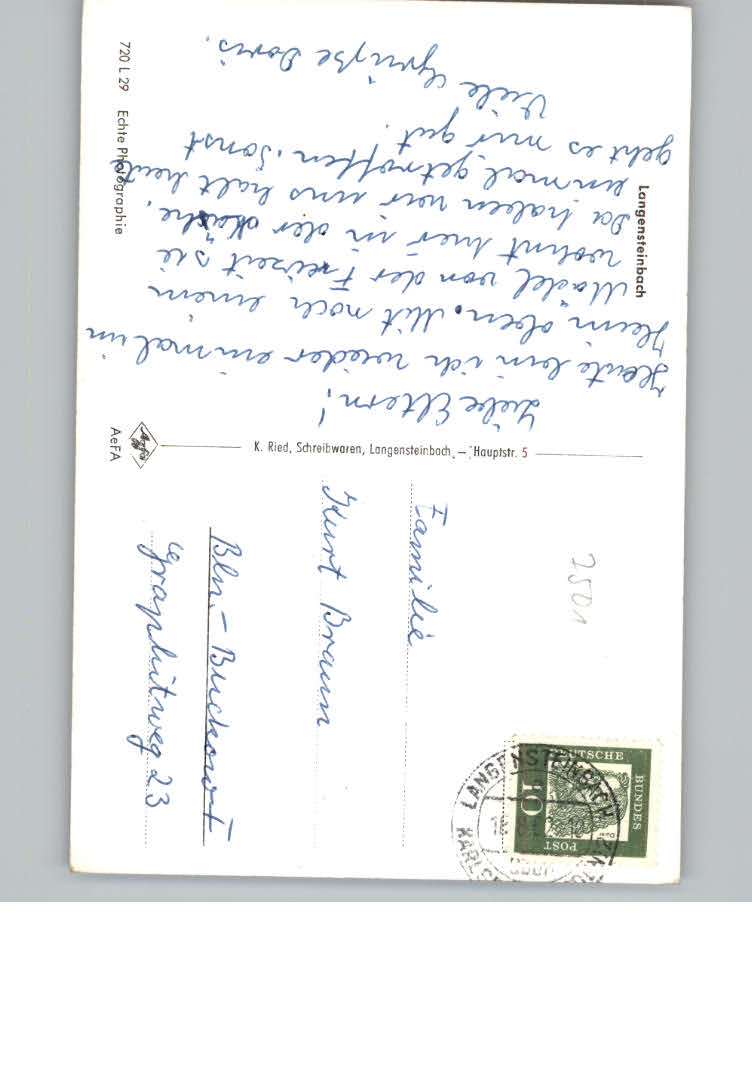 Langensteinbach
Liebe Eltern!
Heute bin ich wieder einmal im
Heim oben. Mit noch einem
Mädel von der Freizeit sie
wohnt hier in der Nähe.
Da haben wir uns halt heute
einmal getroffen. Sonst
geht es mir gut.
Viele Grüße Doris.
720 L 29 Echte Photographie
K. Ried, Schreibwaren, Langensteinbach, — Hauptstr. 5
Agfa
AeFA
7501
Familie
Kurt Braun
Bln.-Buckow
Graphitweg 23
DEUTSCHE
BUNDES
POST
10
LANGENSTEINBACH